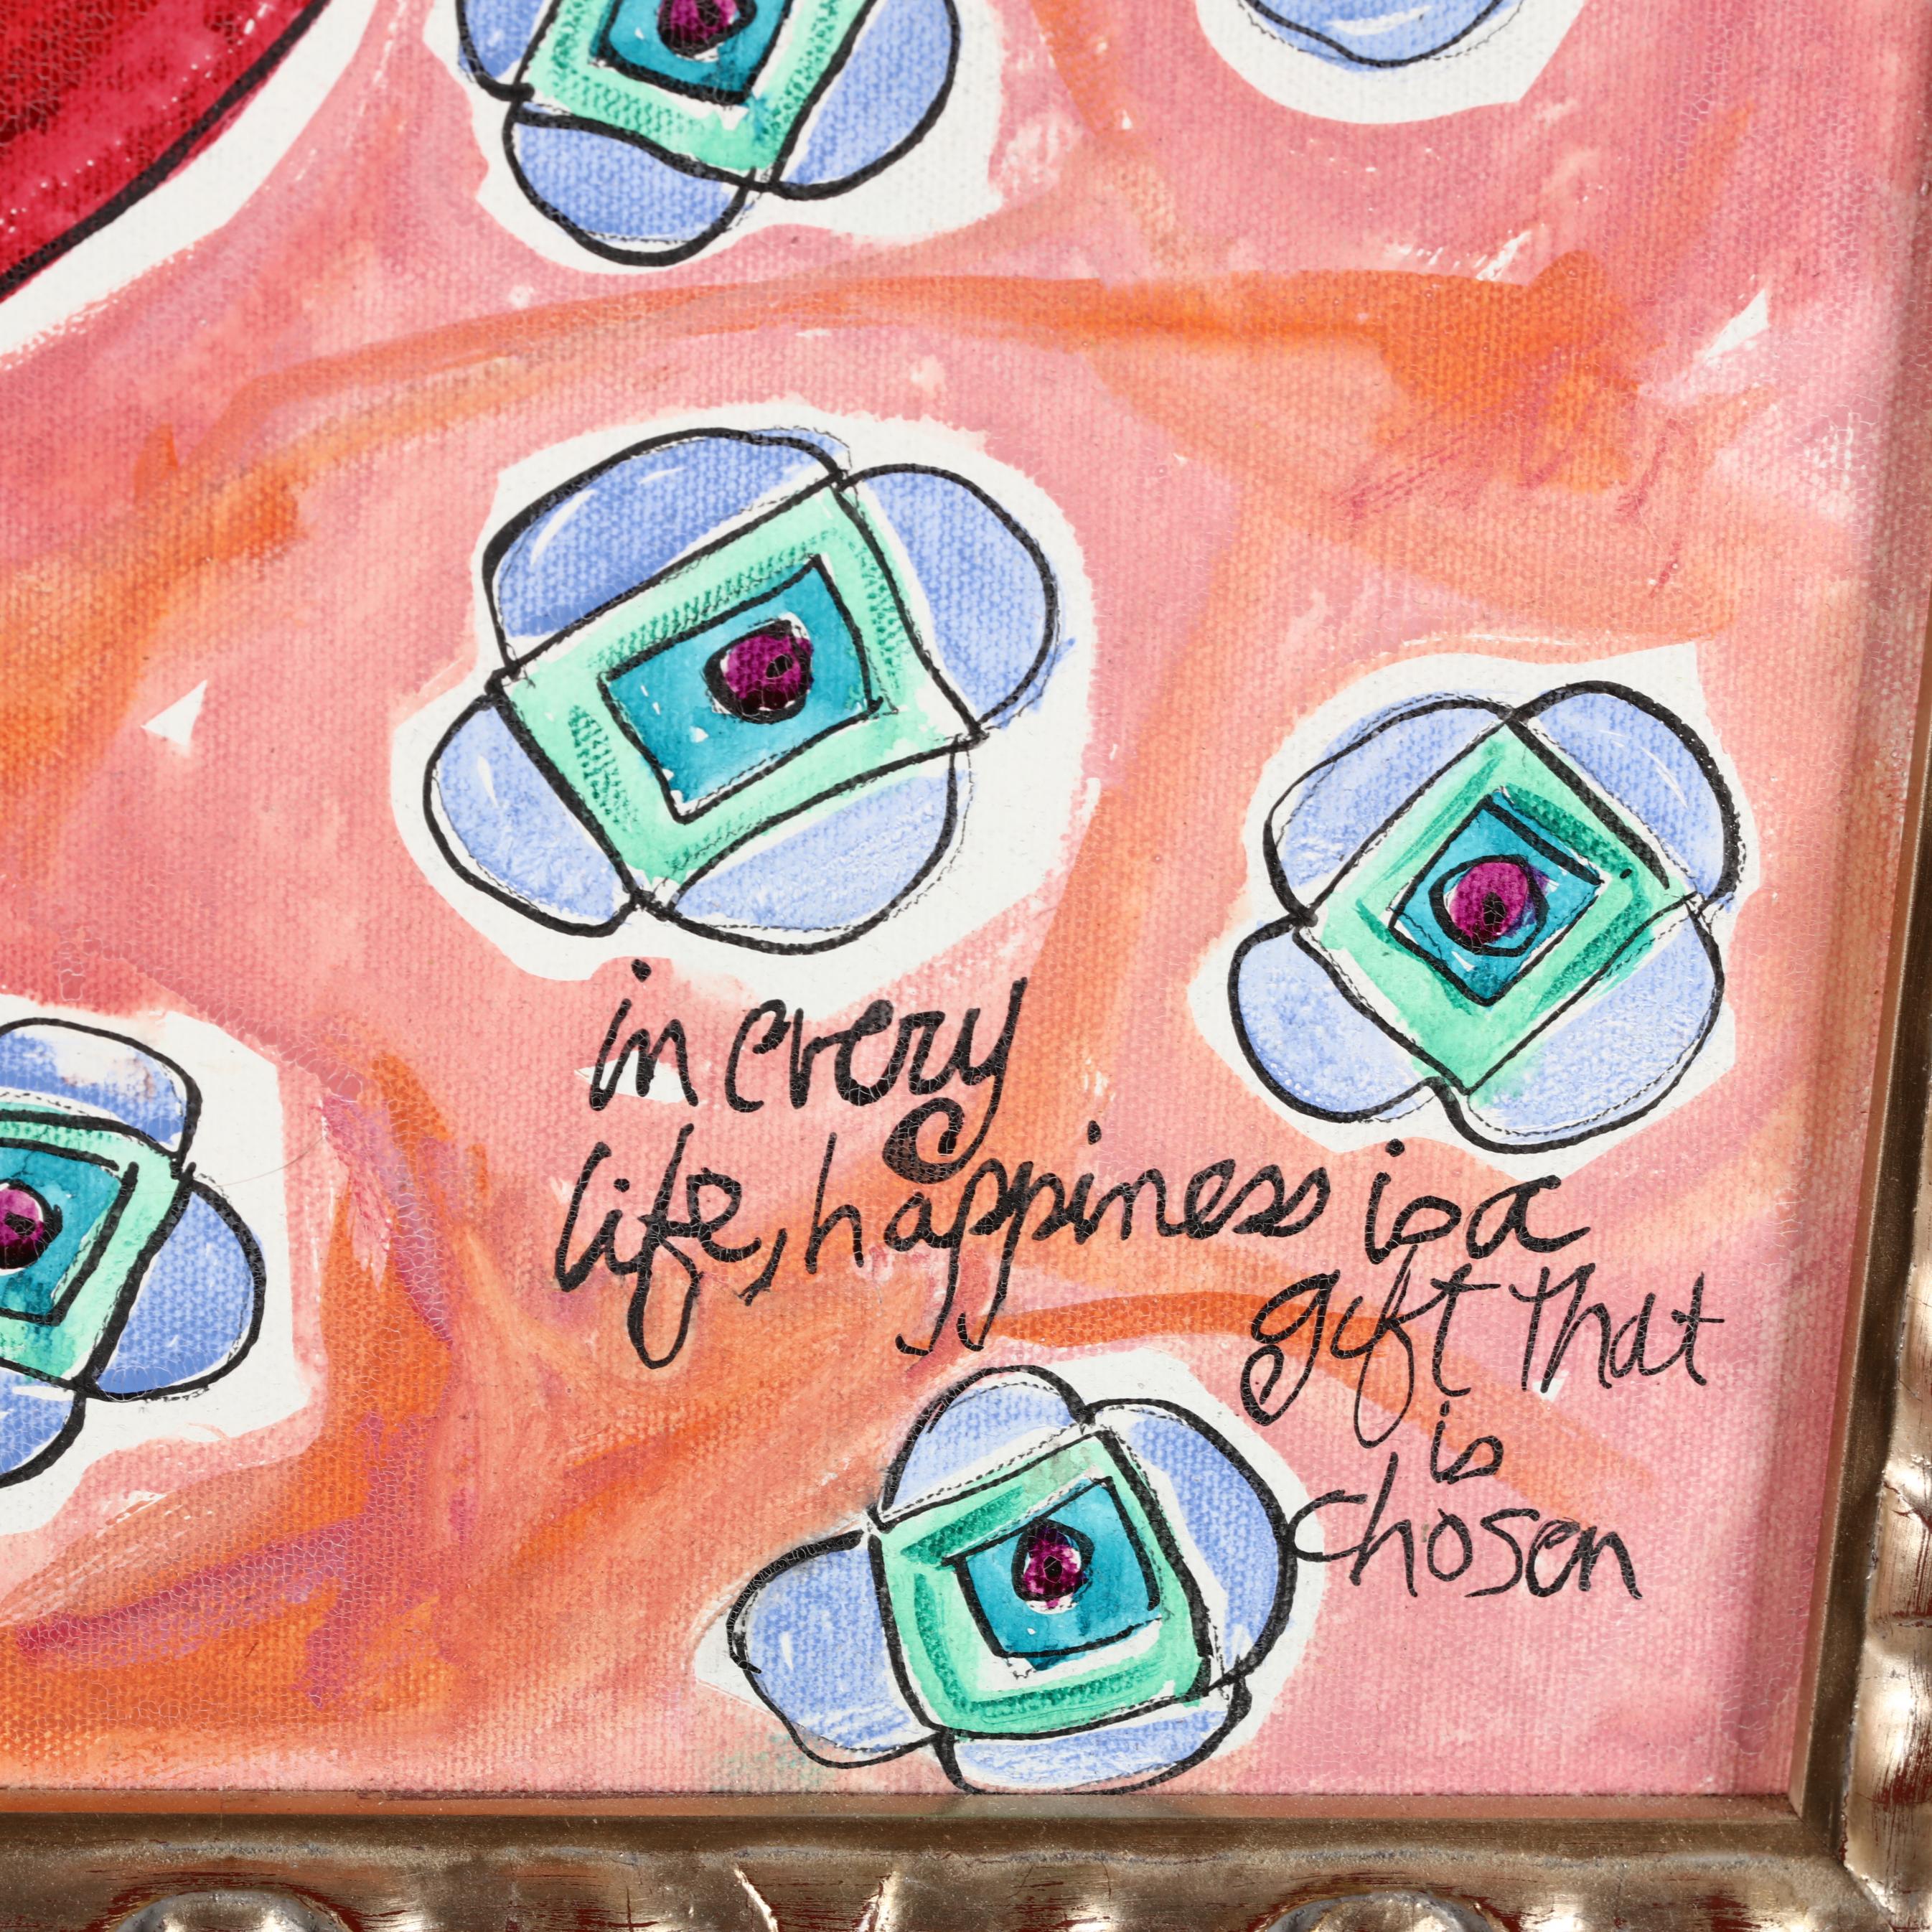 in every
life, happiness is a
gift that
is
chosen